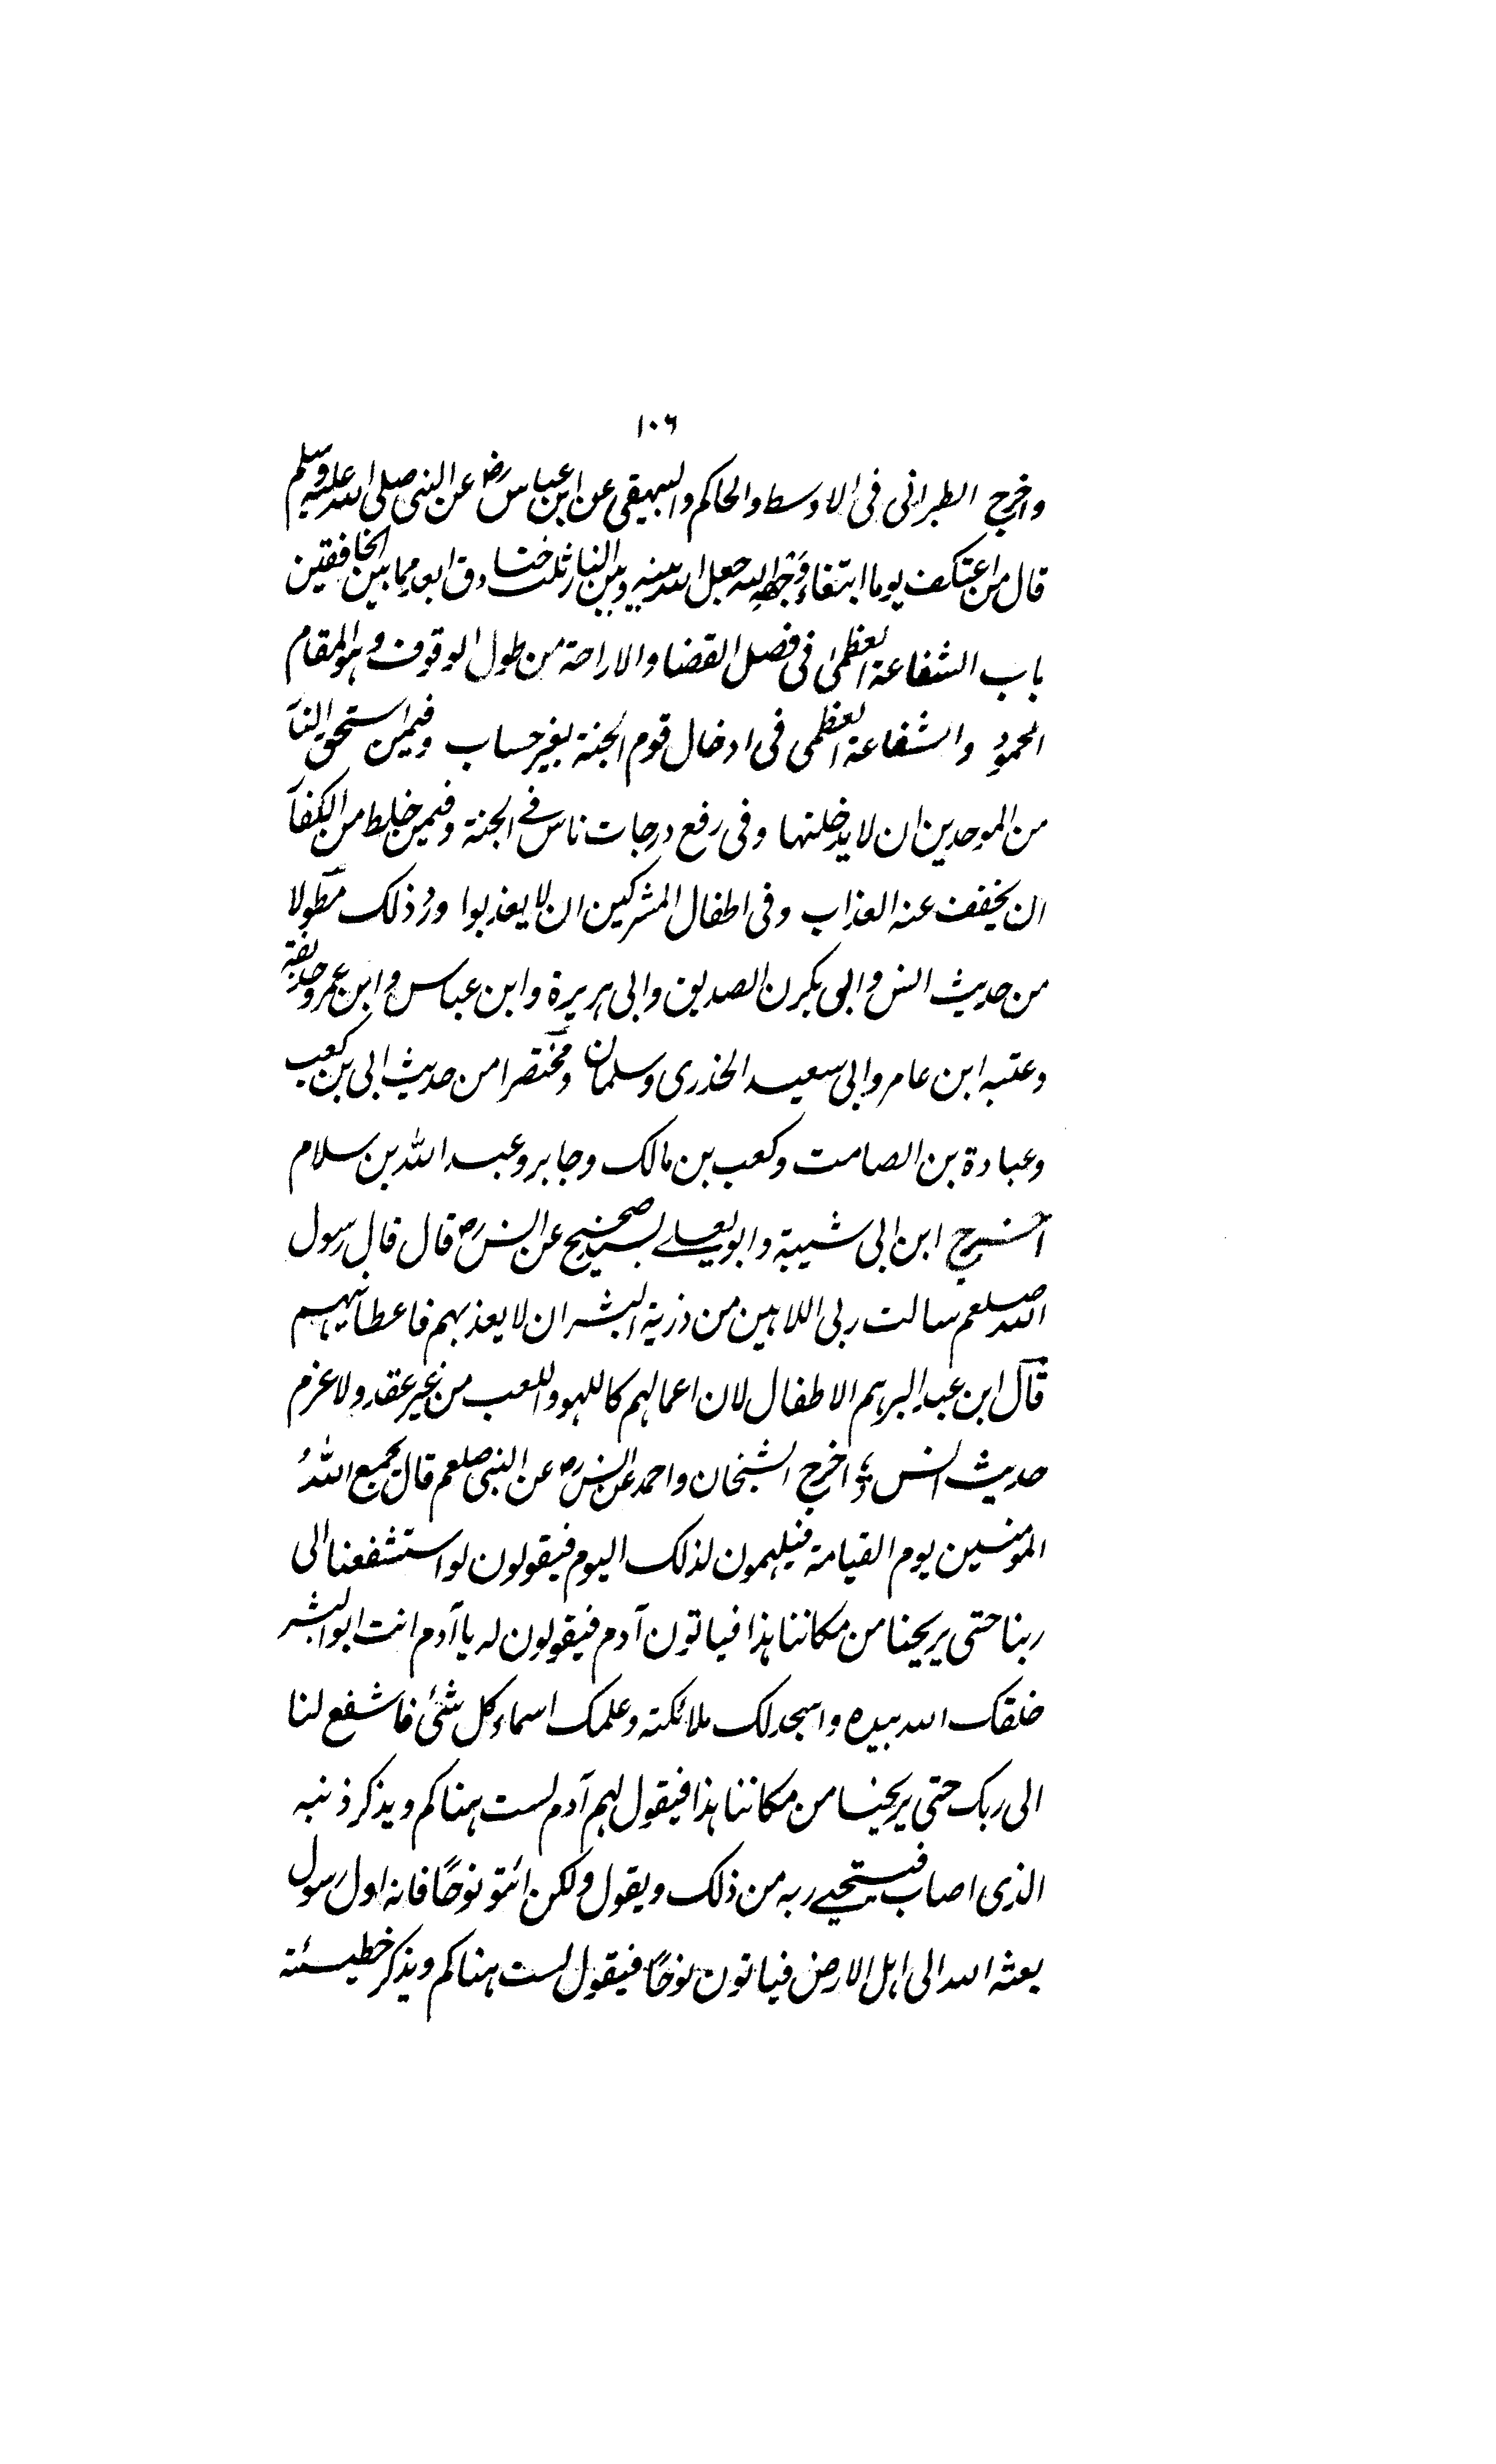 ١٠٦
واخرج الطبرانی فی الاوسط والحاکم والبیهقی عن ابن عباس رض عن النبی صلی الله علیه وسلم
قال من اعتکف یوما ابتغاء وجه الله جعل الله بینه وبین النار ثلث خنادق ابعد مما بین الخافقین
باب الشفاعة العظمیٰ فی فصل القضا والاراحة من طول الوقوف وهو المقام
المحمود والشفاعة العظمی فی ادخال قوم الجنة بغیر حساب وفیمن استحق النار
من الموحدین ان لا یدخلنها وفی رفع درجات ناس فے الجنة وفیمن خلط من الکفار
ان یخفف عنه العذاب وفی اطفال المشرکین ان لا یعذبوا ورد ذلک مطولا
من حدیث انس وابی بکرن الصدیق وابی هریرة وابن عباس وابن عمر وحذیفة
وعتبه ابن عامر وابی سعید الخذری وسلمان ومختصرا من حدیث ابی بن کعب
وعبادة بن الصامت وکعب بن مالک وجابر وعبد الله بن سلام
اخرج ابن ابی شیبة وابو یعلے بسند صحیح عن انس رض قال قال رسول
الله صلعم سالت ربی اللاهین من ذریة البشر ان لا یعذبهم فاعطانیهم
قال ابن عبد البر هم الاطفال لان اعمالهم کاللهو واللعب من غیر عقد ولا عزم
حدیث انس رض اخرج الشیخان واحمد عن انس رض عن النبی صلعم قال یجمع اللهُ
المومنین یوم القیامة فیلهمون لذلک الیوم فیقولون لو استشفعنا الی
ربنا حتی یریحنا من مکاننا هذا فیاتون آدم فیقولون له یا آدم انت ابو البشر
خلقک الله بیده واسجد لک ملائکته وعلمک اسماء کل شئ فاشفع لنا
الی ربک حتی یریحنا من مکاننا هذا فیقول لهم آدم لست هناکم ویذکر ذنبه
الذی اصاب فیستحیے ربه من ذلک ویقول ولکن ائتو نوحًا فانه اول رسول
بعثه الله الی اهل الارض فیاتون نوحًا فیقول لست هناکم ویذکر خطیئته